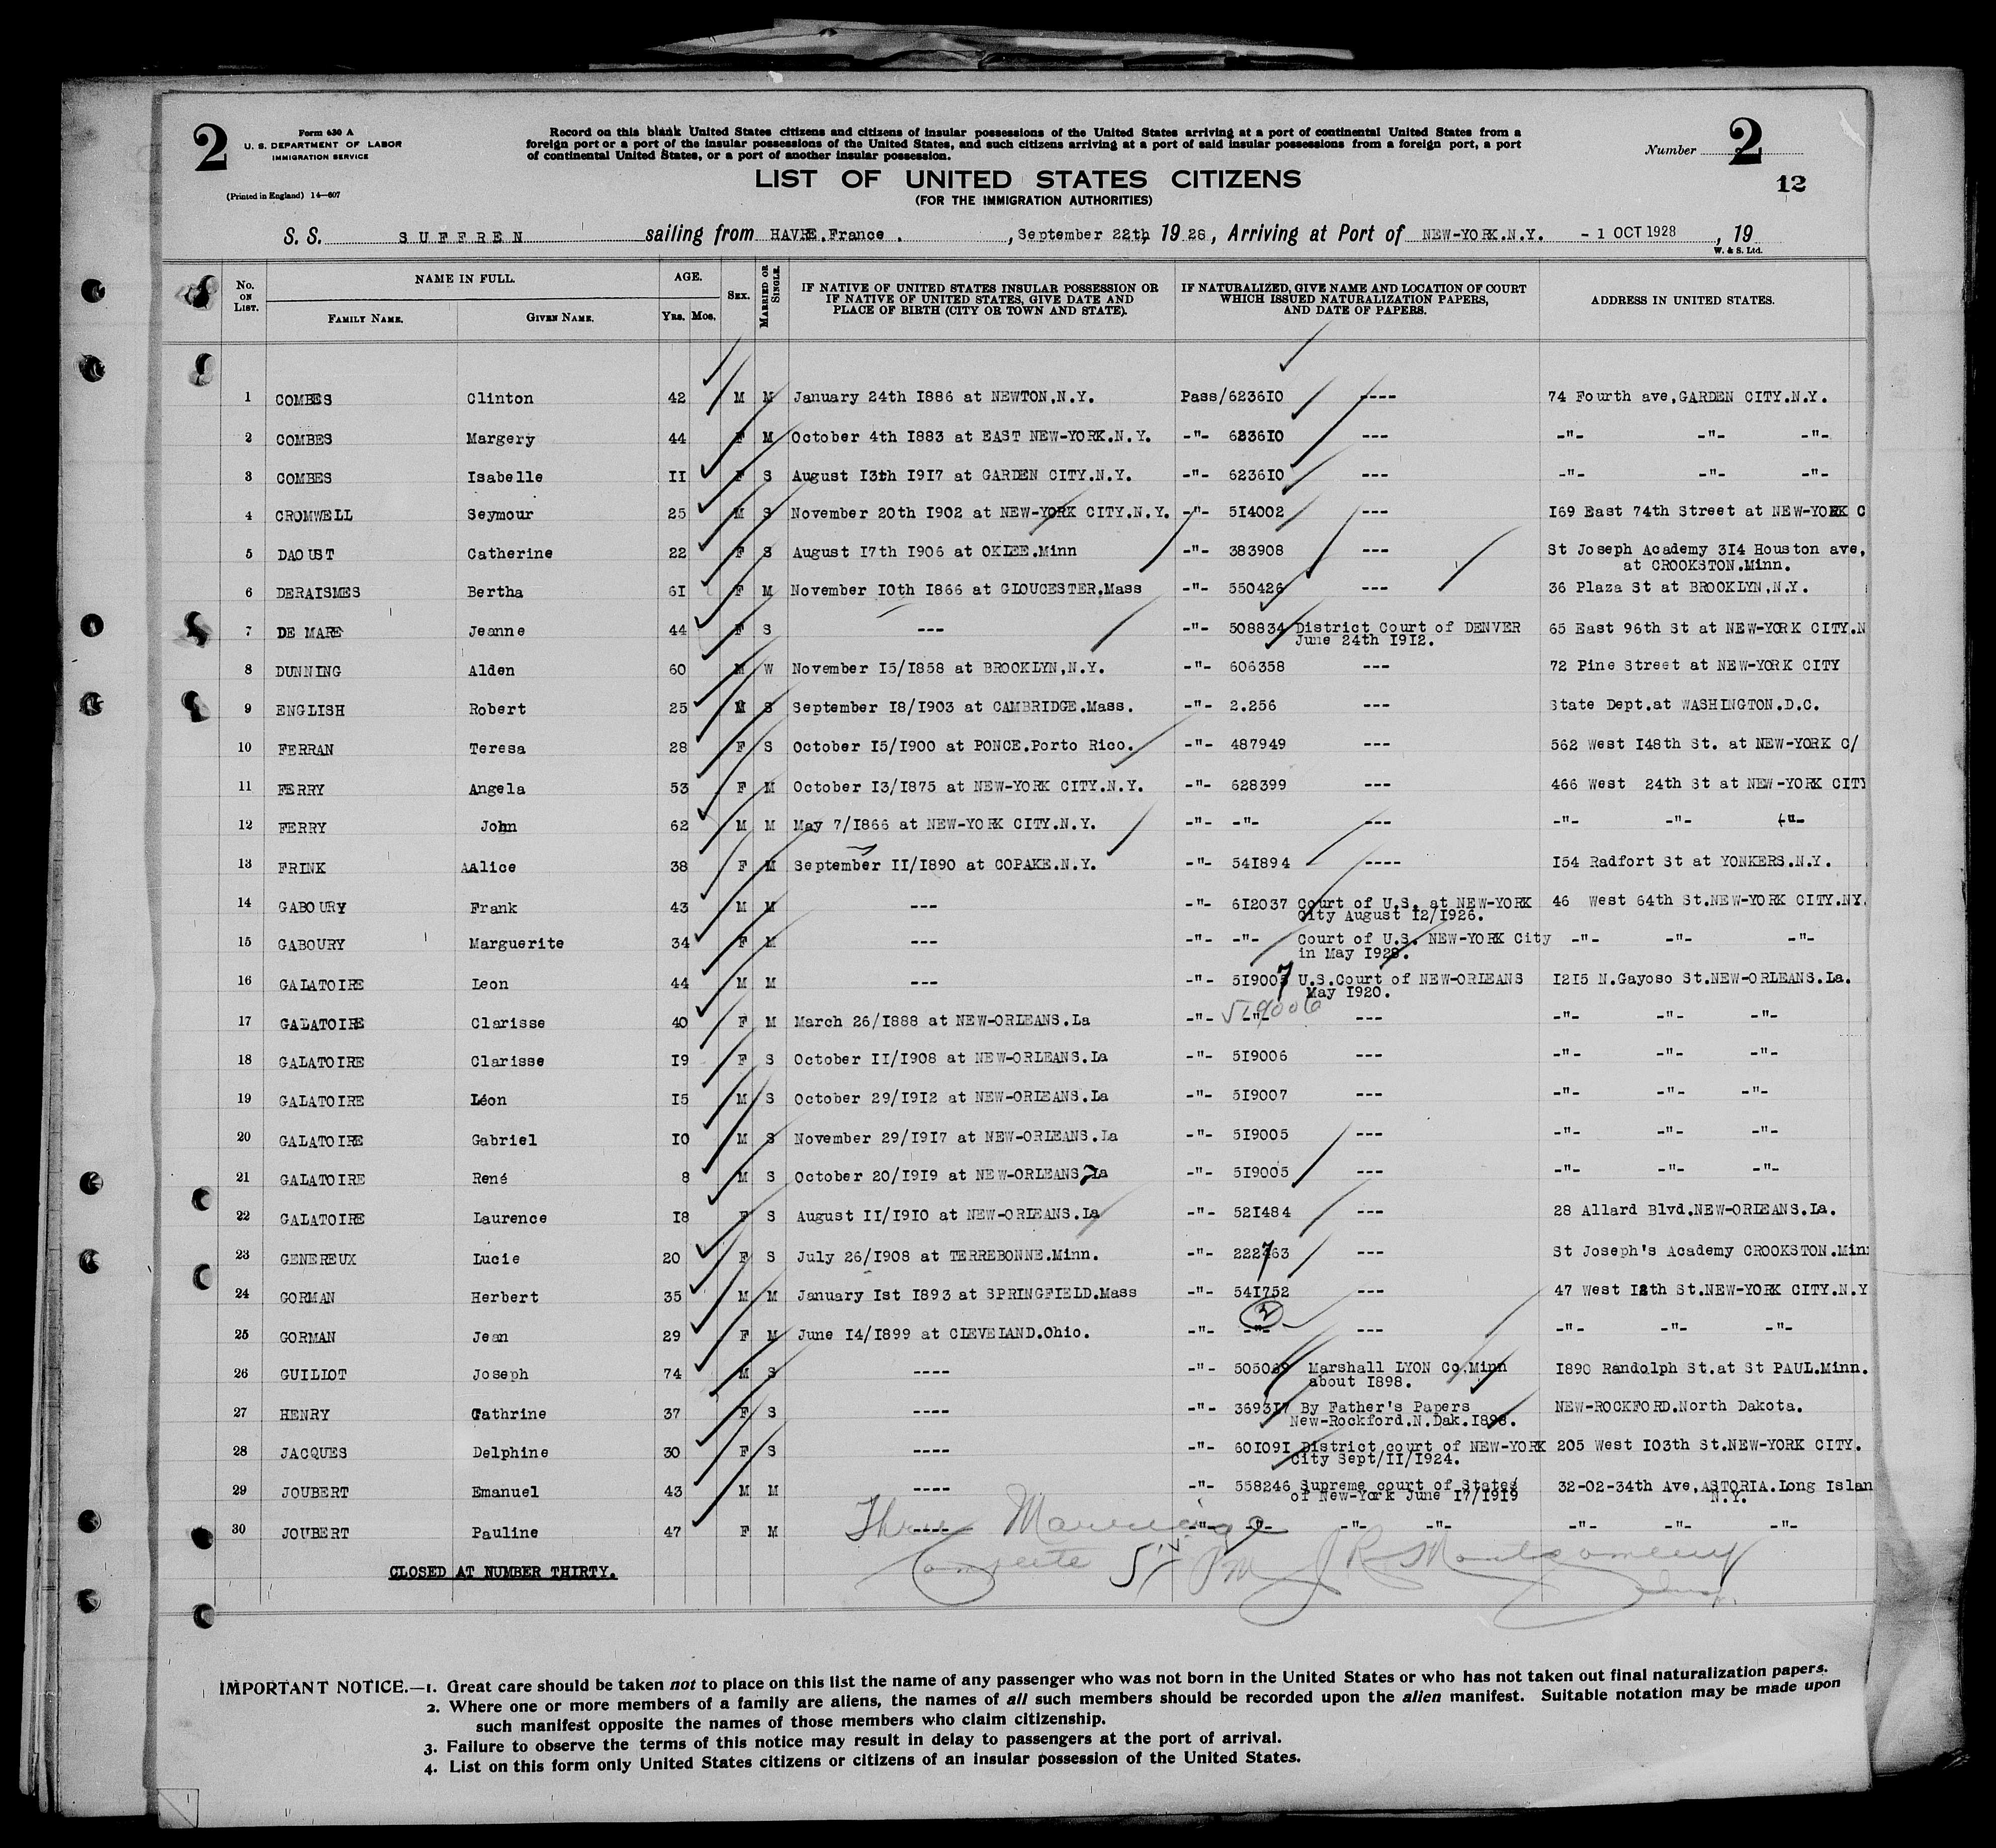 2
Form 630 A
U. S. DEPARTMENT OF LABOR
IMMIGRATION SERVICE
(Printed in England) 14—607
Record on this blank United States citizens and citizens of insular possessions of the United States arriving at a port of continental United States from a
foreign port or a port of the insular possessions of the United States, and such citizens arriving at a port of said insular possessions from a foreign port, a port
of continental United States, or a port of another insular possession.
Number 2
12
LIST OF UNITED STATES CITIZENS
(FOR THE IMMIGRATION AUTHORITIES)
S. S. SUFFREN sailing from HAVRE.France. , September 22th, 19 28, Arriving at Port of NEW-YORK.N.Y. - 1 OCT 1928 , 19
W. & S. Ltd.
No. ON LIST. NAME IN FULL. FAMILY NAME. GIVEN NAME. AGE. YRS. MOS. SEX. MARRIED OR SINGLE. IF NATIVE OF UNITED STATES INSULAR POSSESSION OR IF NATIVE OF UNITED STATES, GIVE DATE AND PLACE OF BIRTH (CITY OR TOWN AND STATE). IF NATURALIZED, GIVE NAME AND LOCATION OF COURT WHICH ISSUED NATURALIZATION PAPERS, AND DATE OF PAPERS. ADDRESS IN UNITED STATES.
1 COMBES Clinton 42 M M January 24th I886 at NEWTON.N.Y. Pass/6236I0 ---- 74 Fourth ave,GARDEN CITY.N.Y.
2 COMBES Margery 44 F M October 4th I883 at EAST NEW-YORK.N.Y. -"- 6236I0 --- -"- -"- -"-
3 COMBES Isabelle II F S August I3th I9I7 at GARDEN CITY.N.Y. -"- 6236I0 --- -"- -"- -"-
4 CROMWELL Seymour 25 M S November 20th I902 at NEW-YORK CITY.N.Y. -"- 5I4002 --- I69 East 74th Street at NEW-YORK C
5 DAOUST Catherine 22 F S August I7th I906 at OKLEE.Minn -"- 383908 --- St Joseph Academy 3I4 Houston ave,
at CROOKSTON.Minn.
6 DERAISMES Bertha 6I F M November I0th I866 at GLOUCESTER.Mass -"- 550426 --- 36 Plaza St at BROOKLYN.N.Y.
7 DE MARE Jeanne 44 F S --- -"- 508834 District Court of DENVER 65 East 96th St at NEW-YORK CITY.N
June 24th I9I2.
8 DUNNING Alden 60 M W November I5/I858 at BROOKLYN,N.Y. -"- 606358 --- 72 Pine Street at NEW-YORK CITY
9 ENGLISH Robert 25 M S September I8/I903 at CAMBRIDGE.Mass. -"- 2.256 --- State Dept.at WASHINGTON.D.C.
10 FERRAN Teresa 28 F S October I5/I900 at PONCE.Porto Rico. -"- 487949 --- 562 West I48th St. at NEW-YORK C/
11 FERRY Angela 53 F M October I3/I875 at NEW-YORK CITY.N.Y. -"- 628399 --- 466 West 24th St at NEW-YORK CITY
12 FERRY John 62 M M May 7/I866 at NEW-YORK CITY.N.Y. -"- -"- --- -"- -"- -"-
13 FRINK AAlice 38 F M September II/I890 at COPAKE.N.Y. -"- 54I894 ---- I54 Radfort St at YONKERS.N.Y.
14 GABOURY Frank 43 M M --- -"- 6I2037 Court of U.S. at NEW-YORK 46 West 64th St.NEW-YORK CITY.NY.
City August I2/I926.
15 GABOURY Marguerite 34 F M --- -"- -"- Court of U.S. NEW-YORK City -"- -"- -"-
in May I928.
16 GALATOIRE Leon 44 M M --- -"- 519007 U.S.Court of NEW-ORLEANS I2I5 N.Gayoso St.NEW-ORLEANS.La.
May I920.
519006
17 GALATOIRE Clarisse 40 F M March 26/I888 at NEW-ORLEANS.La -"- -"- --- -"- -"- -"-
18 GALATOIRE Clarisse I9 F S October II/I908 at NEW-ORLEANS.La -"- 5I9006 --- -"- -"- -"-
19 GALATOIRE Léon I5 M S October 29/I9I2 at NEW-ORLEANS.La -"- 5I9007 --- -"- -"- -"-
20 GALATOIRE Gabriel I0 M S November 29/I9I7 at NEW-ORLEANS.La -"- 5I9005 --- -"- -"- -"-
21 GALATOIRE René 8 M S October 20/I9I9 at NEW-ORLEANS.La -"- 5I9005 --- -"- -"- -"-
22 GALATOIRE Laurence I8 F S August II/I9I0 at NEW-ORLEANS.La -"- 52I484 --- 28 Allard Blvd.NEW-ORLEANS.La.
23 GENEREUX Lucie 20 F S July 26/I908 at TERREBONNE.Minn. -"- 222763 --- St Joseph's Academy CROOKSTON.Min
24 GORMAN Herbert 35 M M January Ist I893 at SPRINGFIELD.Mass -"- 54I752 --- 47 West I2th St.NEW-YORK CITY.N.Y
2
25 GORMAN Jean 29 F M June I4/I899 at CLEVELAND.Ohio. -"- -"- --- -"- -"- -"-
26 GUILLOT Joseph 74 M S ---- -"- 505039 Marshall LYON Co.Minn I890 Randolph St.at St PAUL.Minn.
about I898.
27 HENRY Cathrine 37 F S ---- -"- 3693I7 By Father's Papers NEW-ROCKFORD.North Dakota.
New-Rockford.N.Dak.I898.
28 JACQUES Delphine 30 F S ---- -"- 60I09I District court of NEW-YORK 205 West I03th St.NEW-YORK CITY.
City Sept/II/I924.
29 JOUBERT Emanuel 43 M M ---- -"- 558246 Supreme court of States 32-02-34th Ave,ASTORIA.Long Islan
of New-York June I7/I9I9 N.Y.
30 JOUBERT Pauline 47 F M ---- -"- -"- -"- -"- -"- -"- -"-
Complete J R Montgomery
CLOSED AT NUMBER THIRTY.
IMPORTANT NOTICE.—1. Great care should be taken not to place on this list the name of any passenger who was not born in the United States or who has not taken out final naturalization papers.
2. Where one or more members of a family are aliens, the names of all such members should be recorded upon the alien manifest. Suitable notation may be made upon
such manifest opposite the names of those members who claim citizenship.
3. Failure to observe the terms of this notice may result in delay to passengers at the port of arrival.
4. List on this form only United States citizens or citizens of an insular possession of the United States.